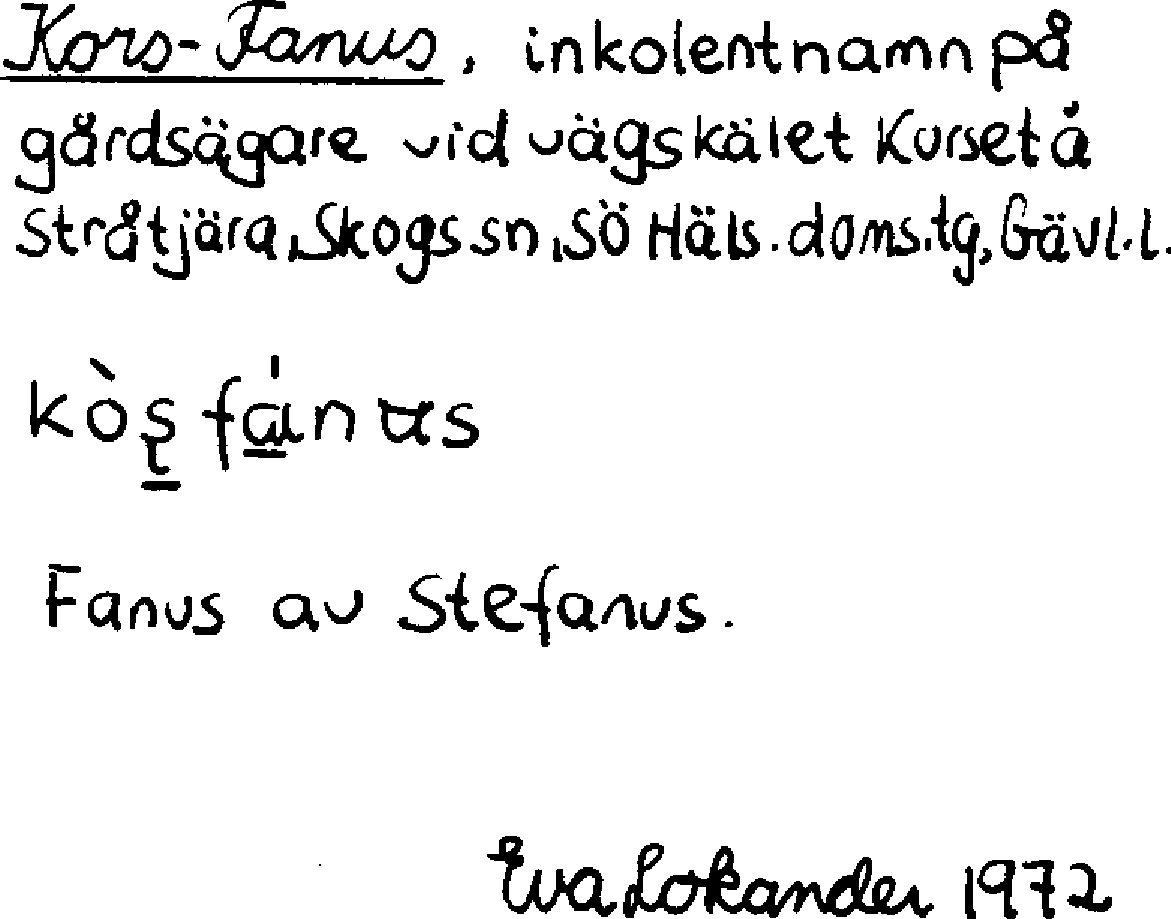 Kors-Fanus, inkolentnamn på
gårdsägare vid vägskälet Kurset å
Stråtjära, Skogs sn, SÖ Häls. doms.tg, Gävl.l.
Fanus av Stefanus.
Eva Lokander 1972